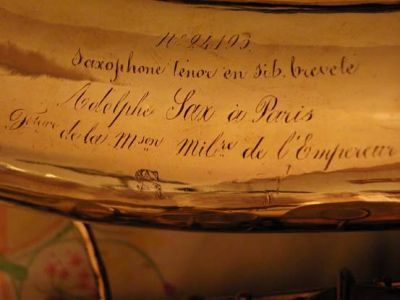 No 24193.
Saxophone ténor en sib breveté
Adolphe Sax à Paris
Fteur de la Mson Milre de l'Empereur